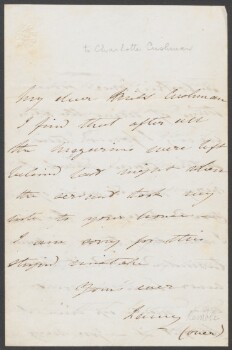 to Charlotte Cushman
My dear Miss Cushman
I find that after all
the magazines were left
behind last night when
the servant took my
note to your house –
I am sorry for this
stupid mistake
Yours ever
(over)